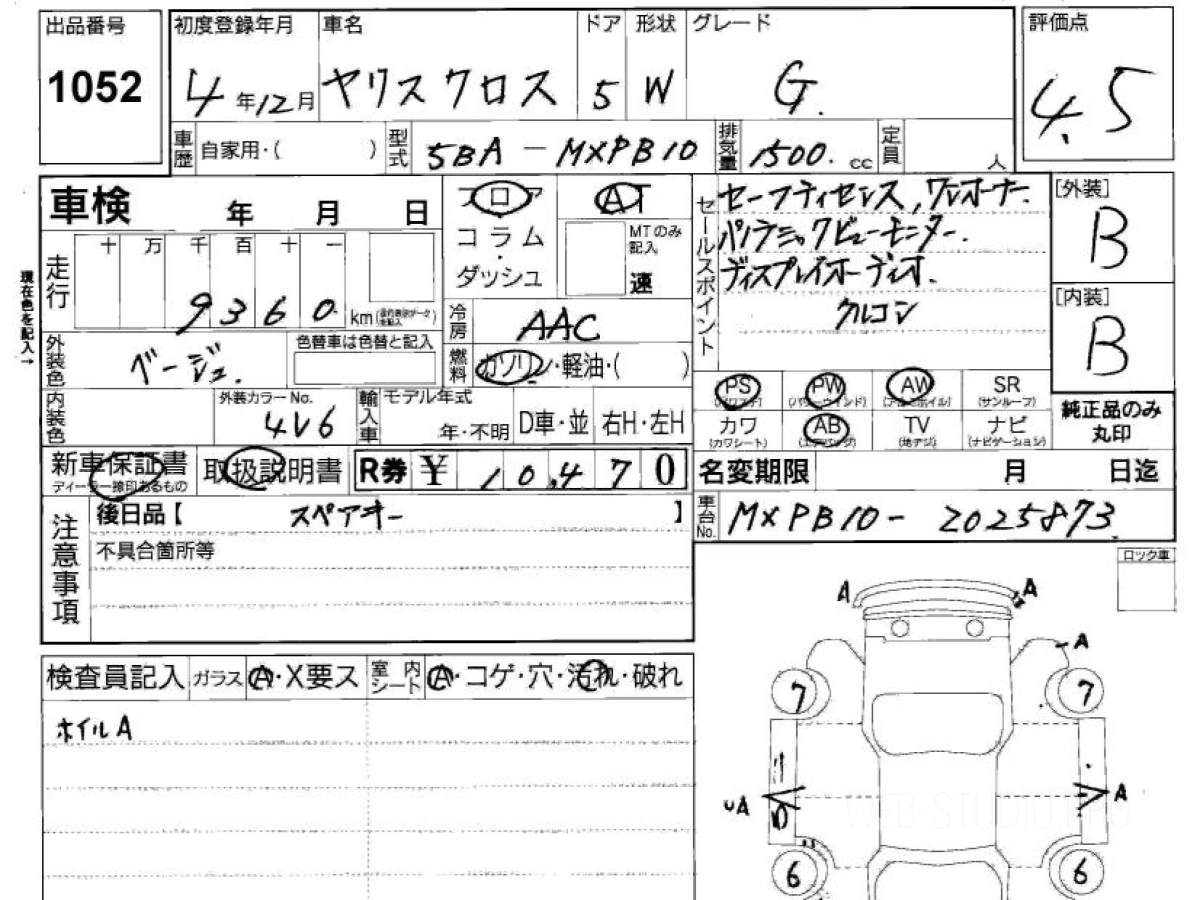 出品番号
1052
初度登録年月
4年12月
車名
ヤリスクロス
ドア
5
形状
W
グレード
G.
評価点
4.5
車歴 自家用・( )
型式 5BA-MXPB10
排気量 1500. cc
定員 人
車検 年 月 日
現在色を記入→
走行 十 万 千 百 十 一
9360 km
フロア
コラム
・
ダッシュ
AT
MTのみ記入
速
セールスポイント
セーフティセンス, ワンオーナー.
パノラミックビューモニター.
ディスプレイオーディオ.
クルコン
[外装]
B
[内装]
B
冷房 AAC
燃料 ガソリン・軽油・( )
外装色 ベージュ.
色替車は色替と記入
内装色
外装カラーNo.
4V6
輸入車
モデル年式
年・不明
D車・並
右H・左H
PS (パワステ)
PW (パワーウインド)
AW (アルミホイル)
SR (サンルーフ)
カワ (カワシート)
AB (エアバッグ)
TV (地デジ)
ナビ (ナビゲーション)
純正品のみ
丸印
新車保証書
ディーラー捺印あるもの
取扱説明書
R券 ¥ 10,470
名変期限 月 日迄
注意事項
後日品【 スペアキー 】
不具合箇所等
車台No. MXPB10-2025873
ロック車
検査員記入
ガラス A・X要ス
室内シート A・コゲ・穴・汚れ・破れ
ホイルA
A
A
A
7
7
A
A
6
6
WEB-STUDIO.PRO